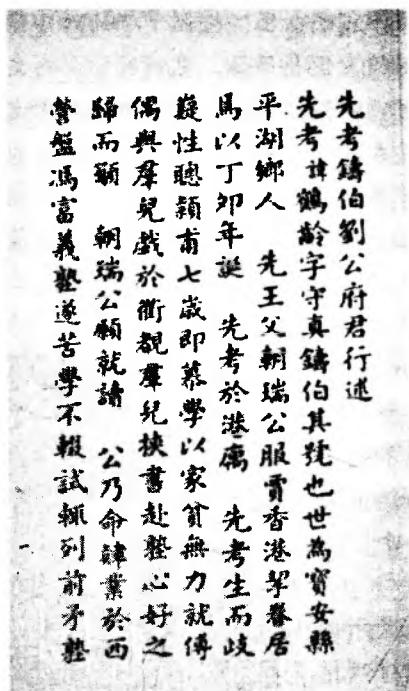 先考鑄伯劉公府君行述
先考諱鶴齡字守真鑄伯其號也世為寶安縣
平湖鄉人　先王父朝瑞公服賈香港挈眷居
焉以丁卯年誕　先考於港寓　先考生而岐
嶷性聰穎甫七歲即慕學以家貧無力就傅
偶與羣兒戲於衢覩羣兒挾書赴塾心好之
歸而籲　朝瑞公願就讀　公乃命肄業於西
營盤馮富義塾遂苦學不輟試輒列前矛塾